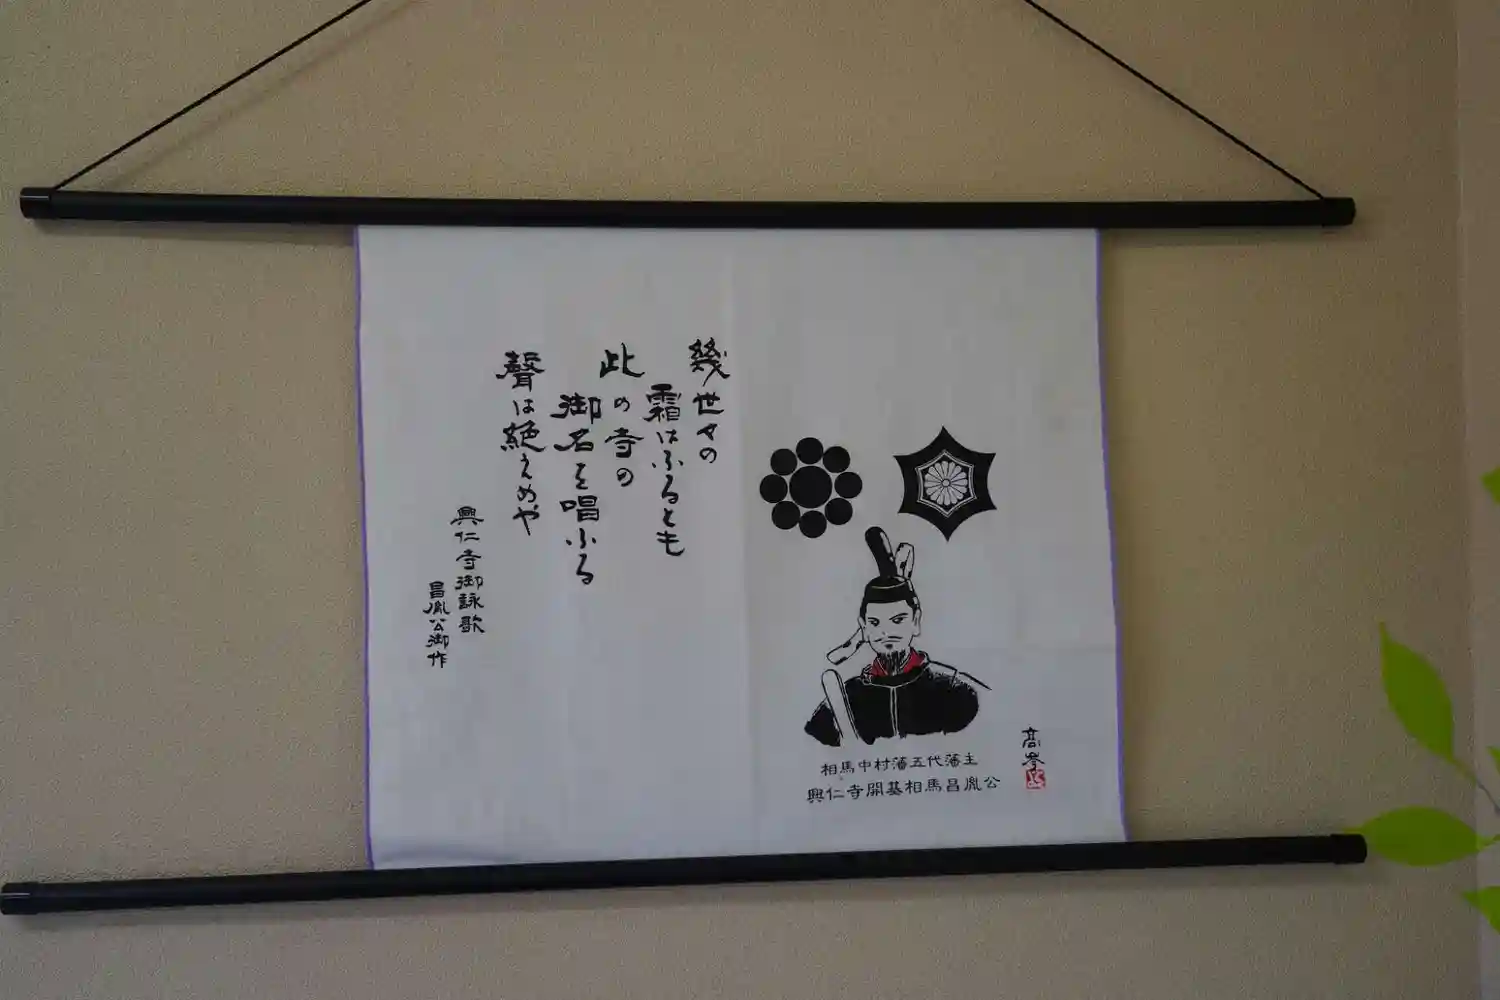 幾世々の
霜はふるとも
此の寺の
御名を唱ふる
聲は絶えめや
興仁寺御詠歌
昌胤公御作
相馬中村藩五代藩主
興仁寺開基相馬昌胤公